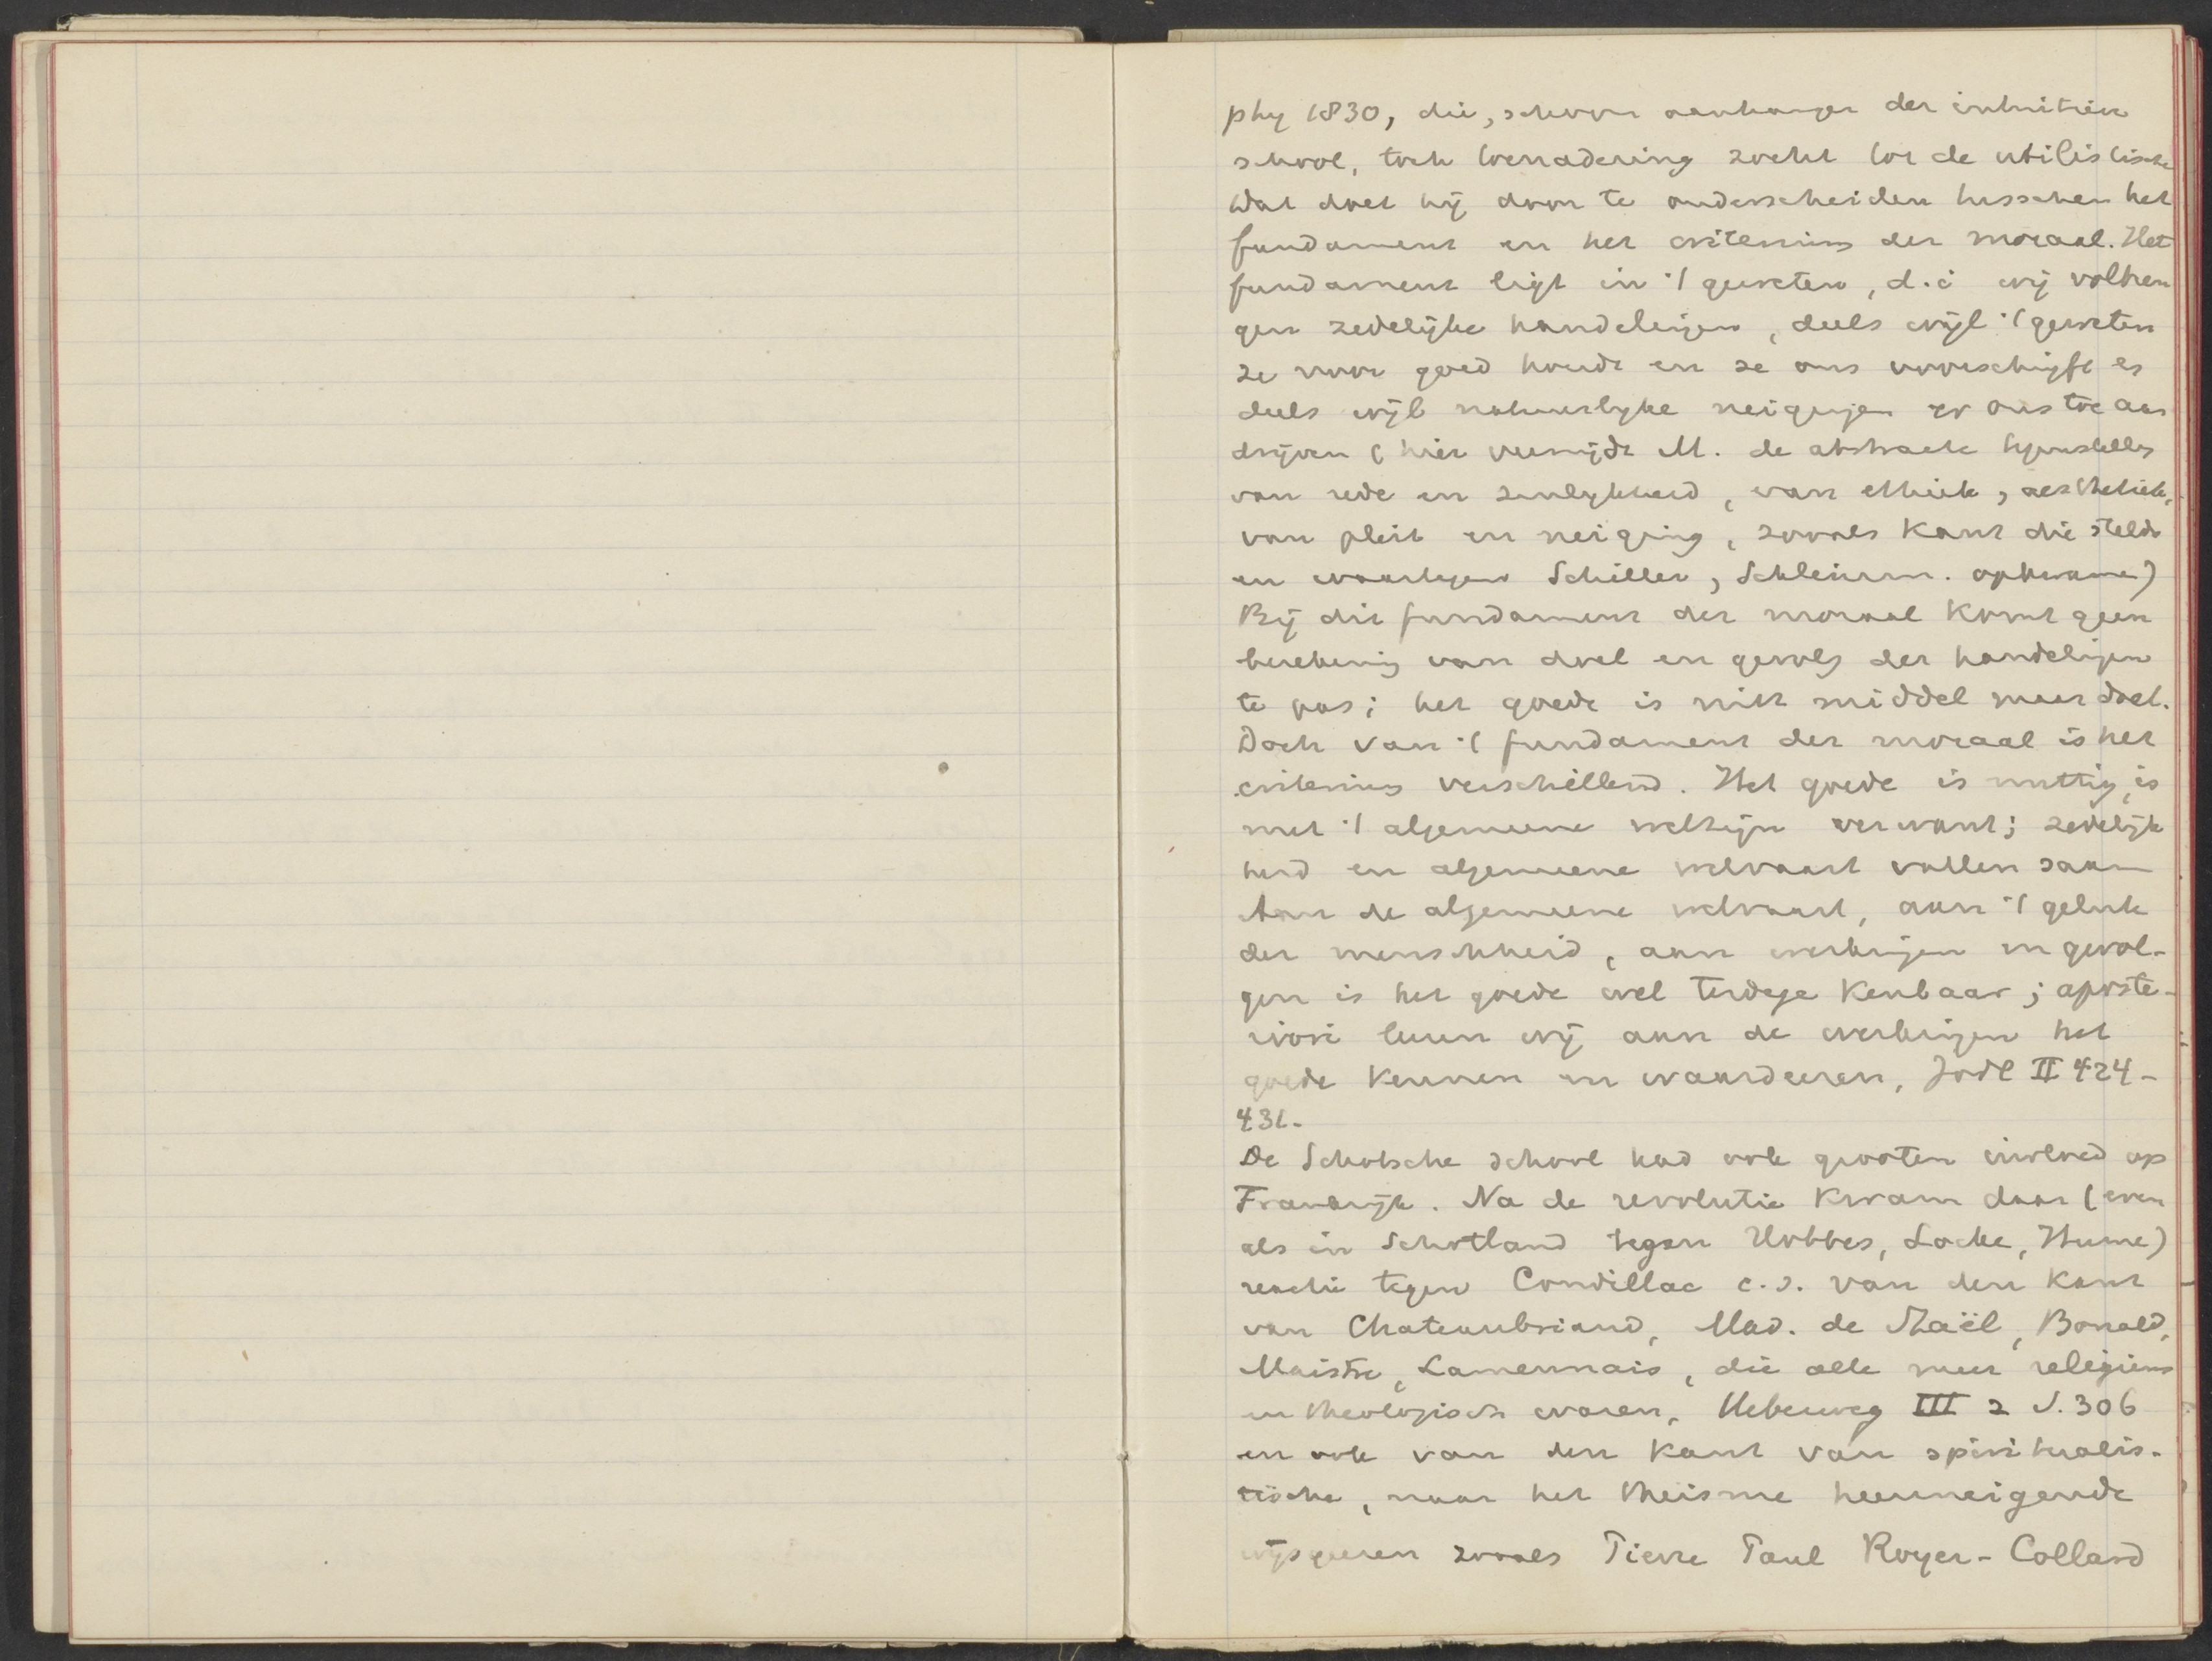 phy 1830, die, schoon aanhanger der intuitieve
school, toch toenadering zocht tot de utilistische
Dat doet hij door te onderscheiden tusschen het
fundament en het criterium der moraal. Het
fundament ligt in 't geweten, d.i wij volbren
gen zedelijke handelingen, deels wijl 't geweten
ze voor goed houdt en ze ons voorschrijft en
deels wijl natuurlijke neigingen er ons toe aan
drijven (hier vermijdt M. de abstracte tegenstelling
van rede en zinlijkheid, van ethiek, aesthetiek,
van plicht en neiging, zooals Kant die stelde
en waartegen Schiller, Schleierm. opkwamen)
Bij dit fundament der moraal komt geen
berekening van doel en gevolg der handelingen
te pas; het goede is niet middel maar doel.
Doch van 't fundament der moraal is het
criterium verschillend. Het goede is nuttig, is
met 't algemeene welzijn verwant; zedelijk
heid en algemeene welvaart vallen saam
Aan de algemeene welvaart, aan 't geluk
der menschheid, aan werkingen en gevol-
gen is het goede wel terdege kenbaar; aposte-
riori leeren wij aan de werkingen het
goede kennen en waardeeren, Jodl II 424-
431.
De Schotsche school had ook grooten invloed op
Frankrijk. Na de revolutie kwam daar (even
als in Schotland tegen Hobbes, Locke, Hume)
reactie tegen Condillac c.s. van den kant
van Chateaubriand, Mad. de Staël, Bonald,
Maistre, Lamennais, die alle meer religieus
en theologisch waren, Ueberweg III 2 S. 306
en ook van den kant van spiritualis-
tische, naar het theisme heenneigende
wijsgeeren zooals Pierre Paul Royer-Collard